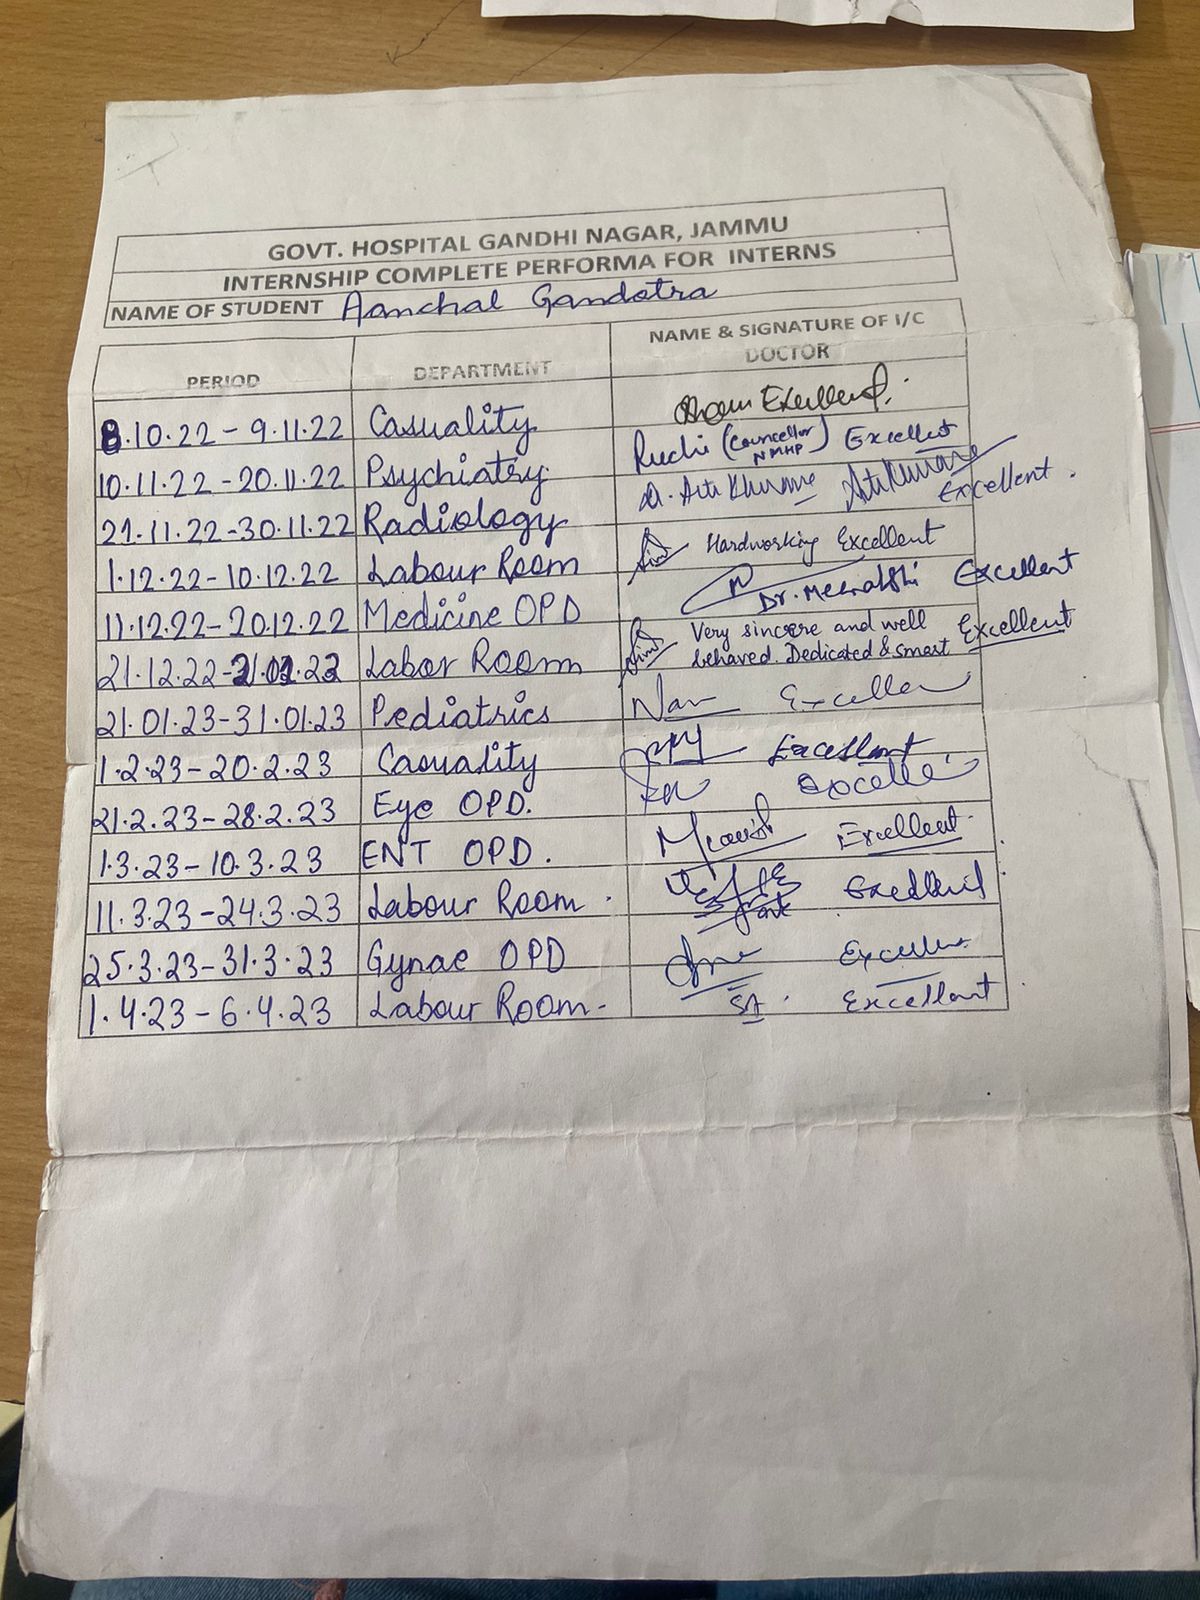 GOVT. HOSPITAL GANDHI NAGAR, JAMMU
INTERNSHIP COMPLETE PERFORMA FOR INTERNS
NAME OF STUDENT Aanchal Gandotra
PERIOD DEPARTMENT NAME & SIGNATURE OF I/C DOCTOR
8.10.22 - 9.11.22 Casuality Excellent.
10.11.22 - 20.11.22 Psychiatry Ruchi (Councellor NMHP) Excellent
21.11.22 - 30.11.22 Radiology Excellent.
1.12.22 - 10.12.22 Labour Room Hardworking Excellent
11.12.22 - 20.12.22 Medicine OPD Dr. Meenakshi Excellent
21.12.22 - Labor Room Very sincere and well behaved. Dedicated & smart Excellent
21.01.23 - 31.01.23 Pediatrics Excellen
1.2.23 - 20.2.23 Casuality Excellent
21.2.23 - 28.2.23 Eye OPD. Excelle
1.3.23 - 10.3.23 ENT OPD. Excellent.
11.3.23 - 24.3.23 Labour Room. Excellent
25.3.23 - 31.3.23 Gynae OPD Excellen
1.4.23 - 6.4.23 Labour Room. SA. Excellent